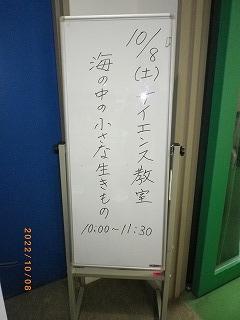 10/8(土)サイエンス教室
海の中の小さな生きもの
10:00～11:30
2022/10/08